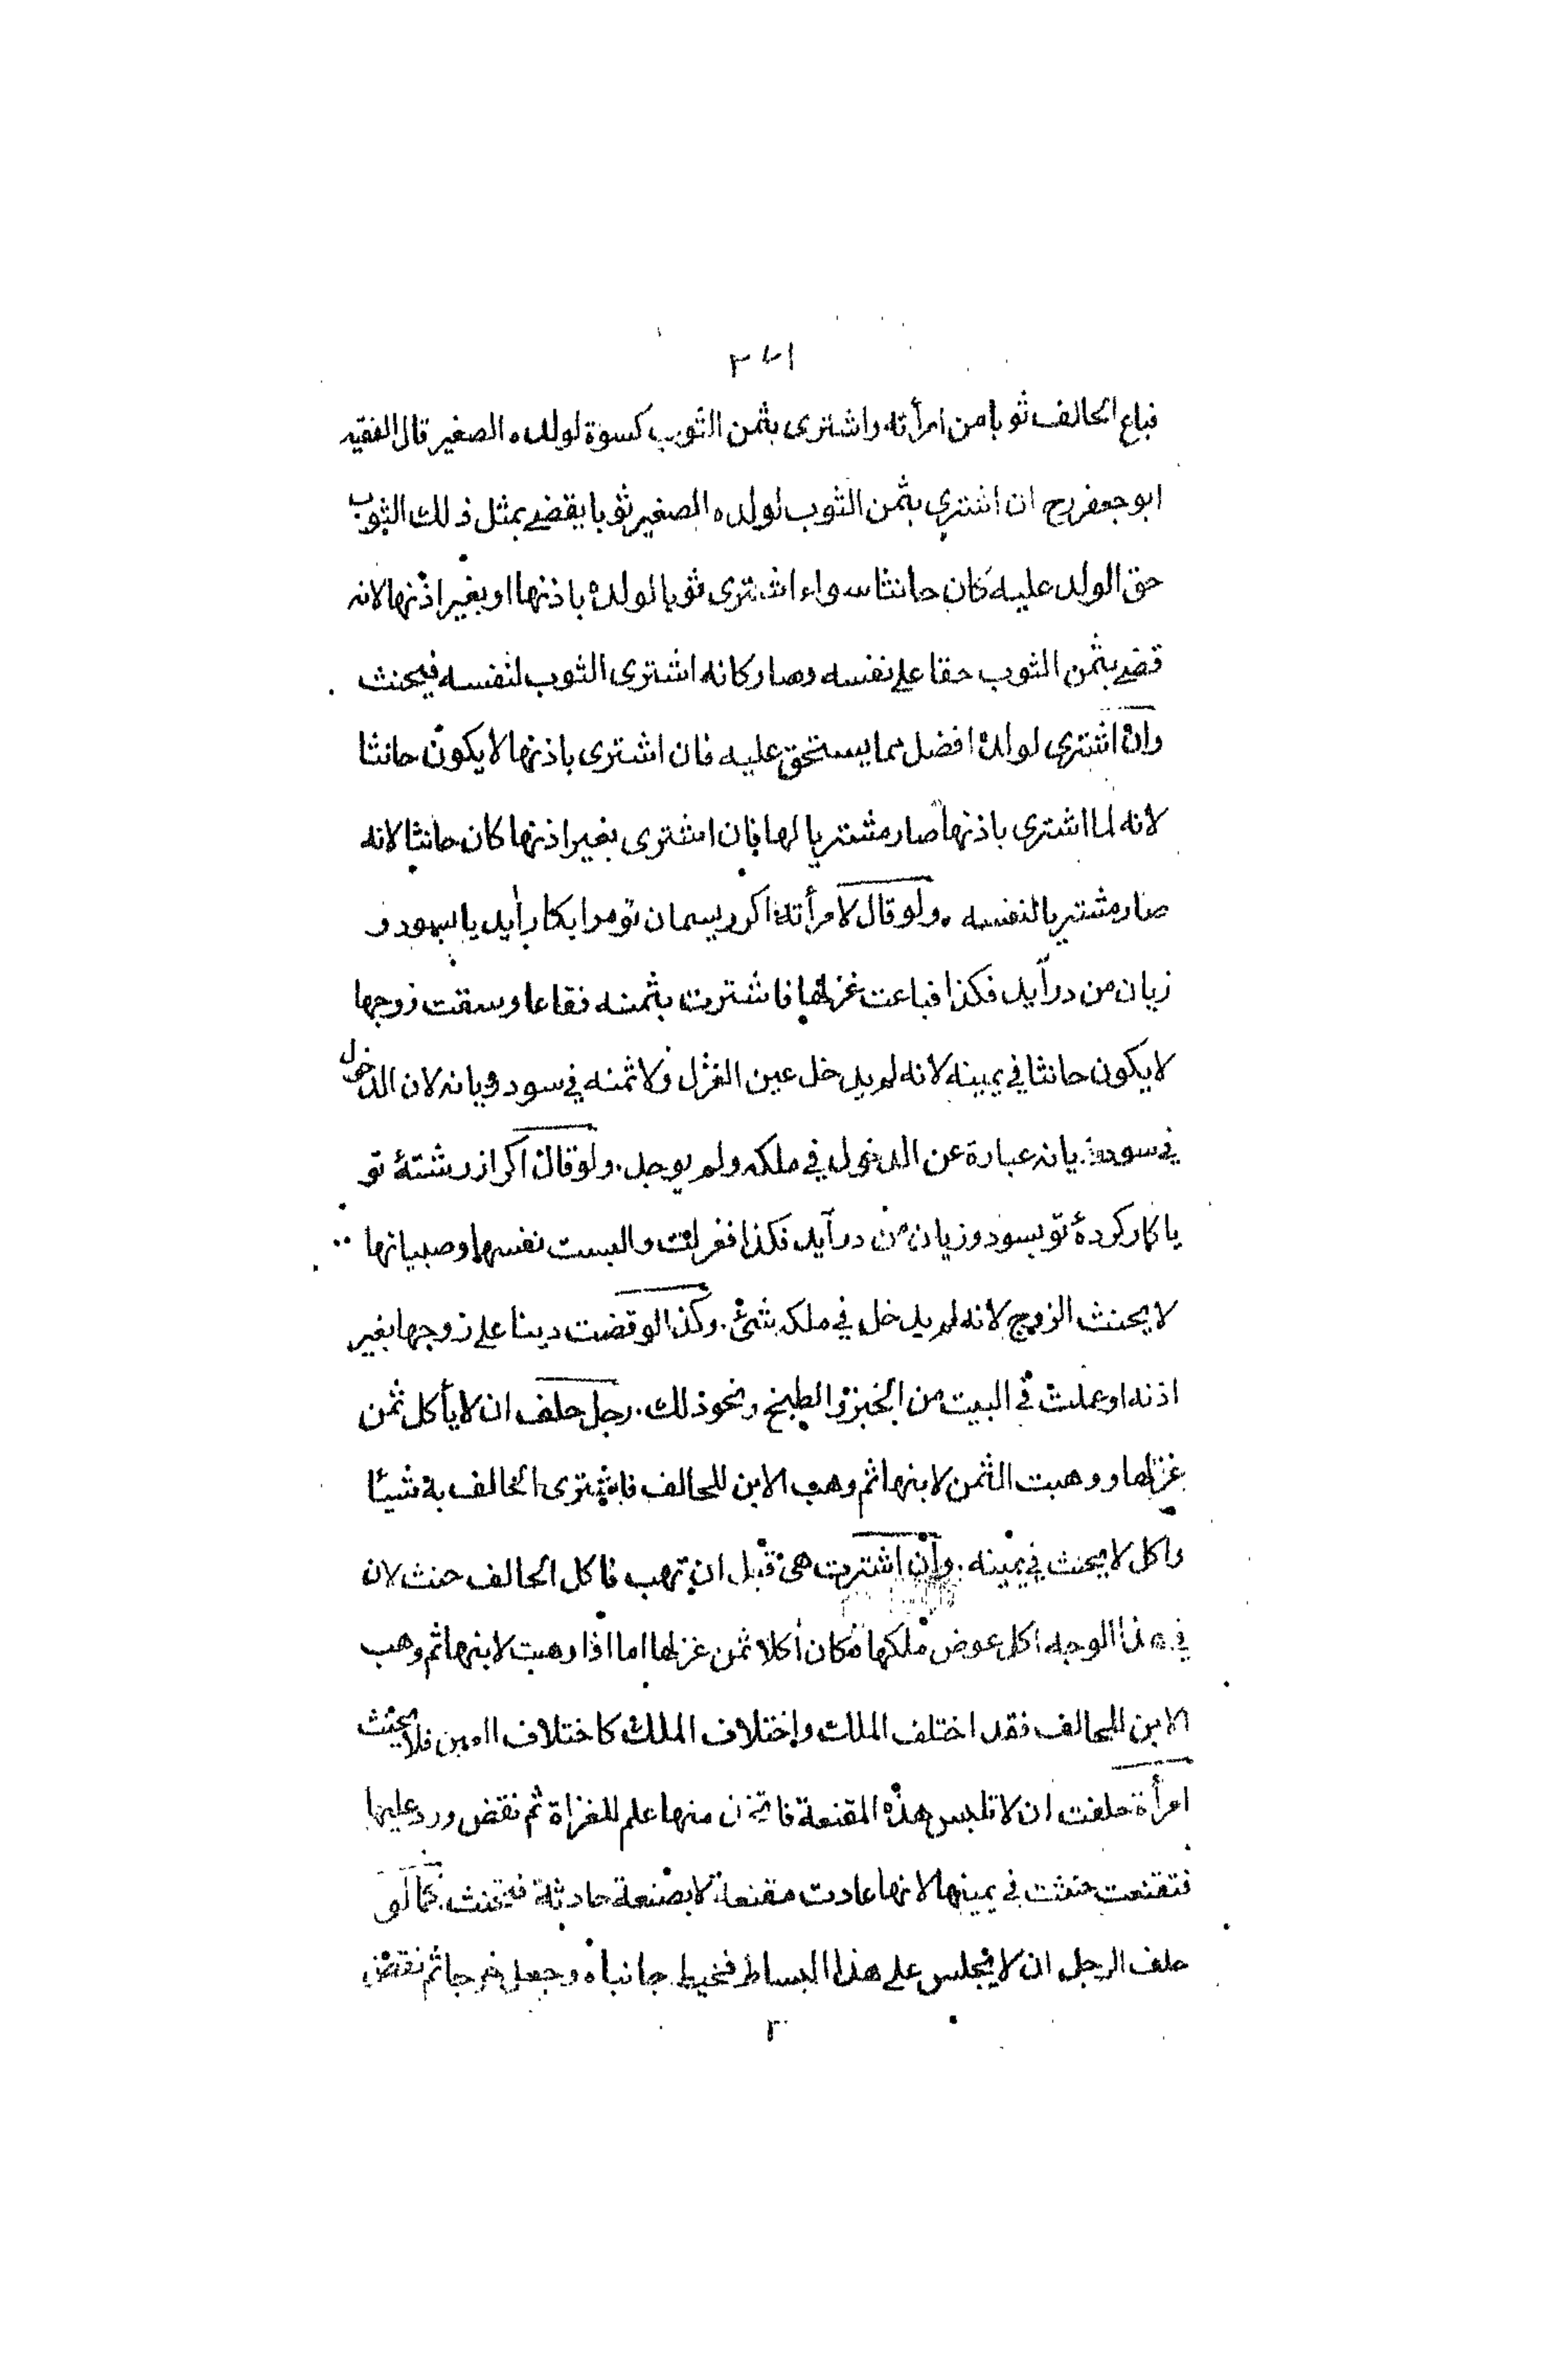 فباع الحالف ثوبا من امرأته واشترى بثمن الثوب كسوة لولده الصغير قال الفقيه
ابو جعفر رح ان اشترى بثمن الثوب لولده الصغير ثوبا يقضى بمثل ذلك الثوب
حق الولد عليه كان حانثا سواء اشترى ثوبا لولده باذنها او بغير اذنها لانه
قضى بثمن الثوب حقا على نفسه وصار كانه اشترى الثوب لنفسه فيحنث
وان اشترى لولده افضل مما يستحق عليه فان اشترى باذنها لا يكون حانثا
لانه لما اشترى باذنها صار مشتريا لها فان اشترى بغير اذنها كان حانثا لانه
صار مشتريا لنفسه ولو قال لامرأته اكر ريسمان تو مرا بكار آيد يا بسود و
زيان من درآيد فكذا فباعت غزلها فاشترت بثمنه فقاعا وسقت زوجها
لا يكون حانثا في يمينه لانه لم يدخل عين الغزل ولا ثمنه في سود وزيانه لان الدخول
في سود زيانه عبارة عن الدخول في ملكه ولم يوجد ولو قال اكر از رشتۀ تو
يا كار كردۀ تو بسود وزيان من درآيد فكذا فغزلت والبست نفسها وصبيانها
لا يحنث الزوج لانه لم يدخل في ملكه شئ وكذا لو قضت دينا على زوجها بغير
اذنه او عملت في البيت من الخبز والطبخ ونحو ذلك رجل حلف ان لا يأكل ثمن
غزلها ووهبت الثمن لابنها ثم وهب الابن للحالف فاشترى الحالف به شيئا
واكل لا يحنث في يمينه وان اشترت هى قبل ان تهب فاكل الحالف حنث لان
في هذا الوجه اكل عوض ملكها فكان آكلا ثمن غزلها اما اذا وهبت لابنها ثم وهب
الابن للحالف فقد اختلف الملك واختلاف الملك كاختلاف العين فلا يحنث
امرأة حلفت ان لا تلبس هذه المقنعة فاتخذ منها علم للغزاة ثم نقض ورد عليها
فتقنعت حنثت في يمينها لانها عادت مقنعة لا بصنعة حادثة فيحنث كما لو
حلف الرجل ان لا يجلس على هذا البساط فخيط جانباه وجعل خرجا ثم نقض